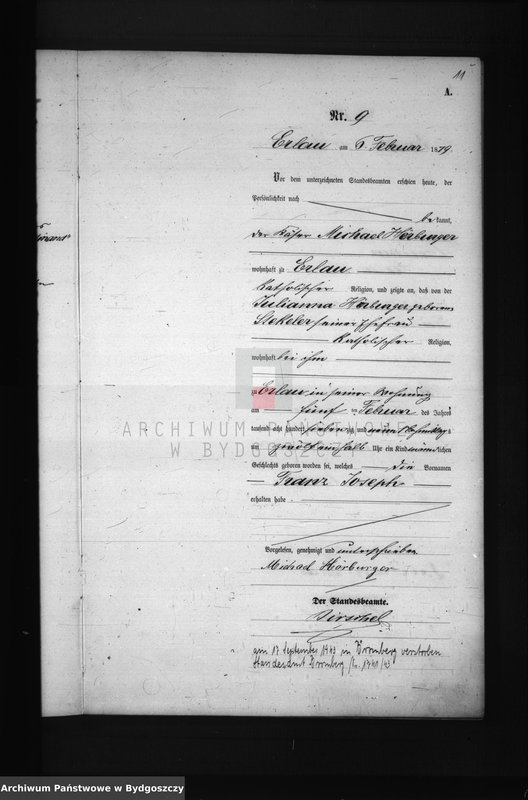 11
A.
Nr. 9
Erlau am 6. Februar 1879
Vor dem unterzeichneten Standesbeamten erschien heute, der
Persönlichkeit nach
be kannt,
der Käser Michael Hörburger
wohnhaft zu Erlau
katholischer Religion, und zeigte an, daß von der
Julianna Hörburger geborene
Stekeler seiner Ehefrau
katholischer Religion,
wohnhaft bei ihm
zu Erlau in seiner Wohnung
am fünf ten Februar des Jahres
tausend acht hundert siebenzig und neun Nachmittags
um zwölf einhalb Uhr ein Kind männlichen
Geschlechts geboren worden sei, welches die Vornamen
Franz Joseph
erhalten habe.
Vorgelesen, genehmigt und unterschrieben
Michael Hörburger
Der Standesbeamte.
am 17 September 1943 in Bromberg verstorben
Standesamt Bromberg
ARCHIWUM PAŃSTWOWE
W BYDGOSZCZY
Archiwum Państwowe w Bydgoszczy